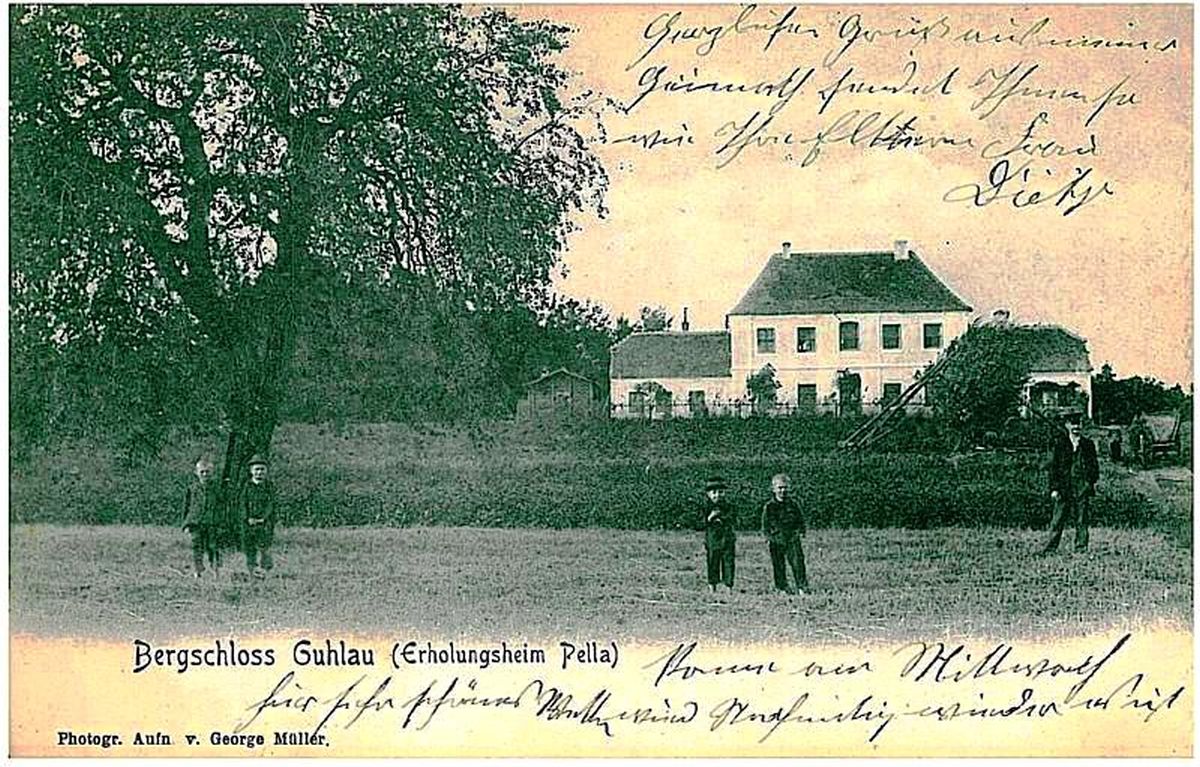 Herzlichen Gruß aus meiner
Heimath sendet Ihnen so
wie Ihre Elttern Frau
Dietze
Bergschloss Guhlau (Erholungsheim Pella)
Komme am Mittwoch
hier sehr schönes Wetter wieder es ist
Photogr. Aufn v. George Müller.